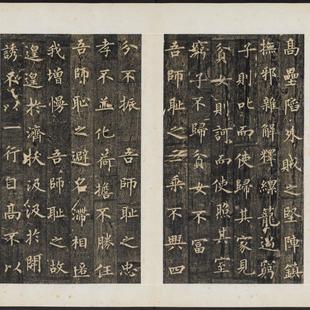 高壘陷外賊之堅陣鎮
撫邪雜解釋縲籠遇窮
子則叱而使歸其家見
貧女則訶而使照其室
窮子不歸貧女不富
吾師恥之三乘不興四
分不振吾師恥之忠
孝不並化荷擔不勝任
吾師恥之避名滯相匿
我增慢吾師恥之故
遑遑於濟拔汲汲於開
誘不以一行自高不以